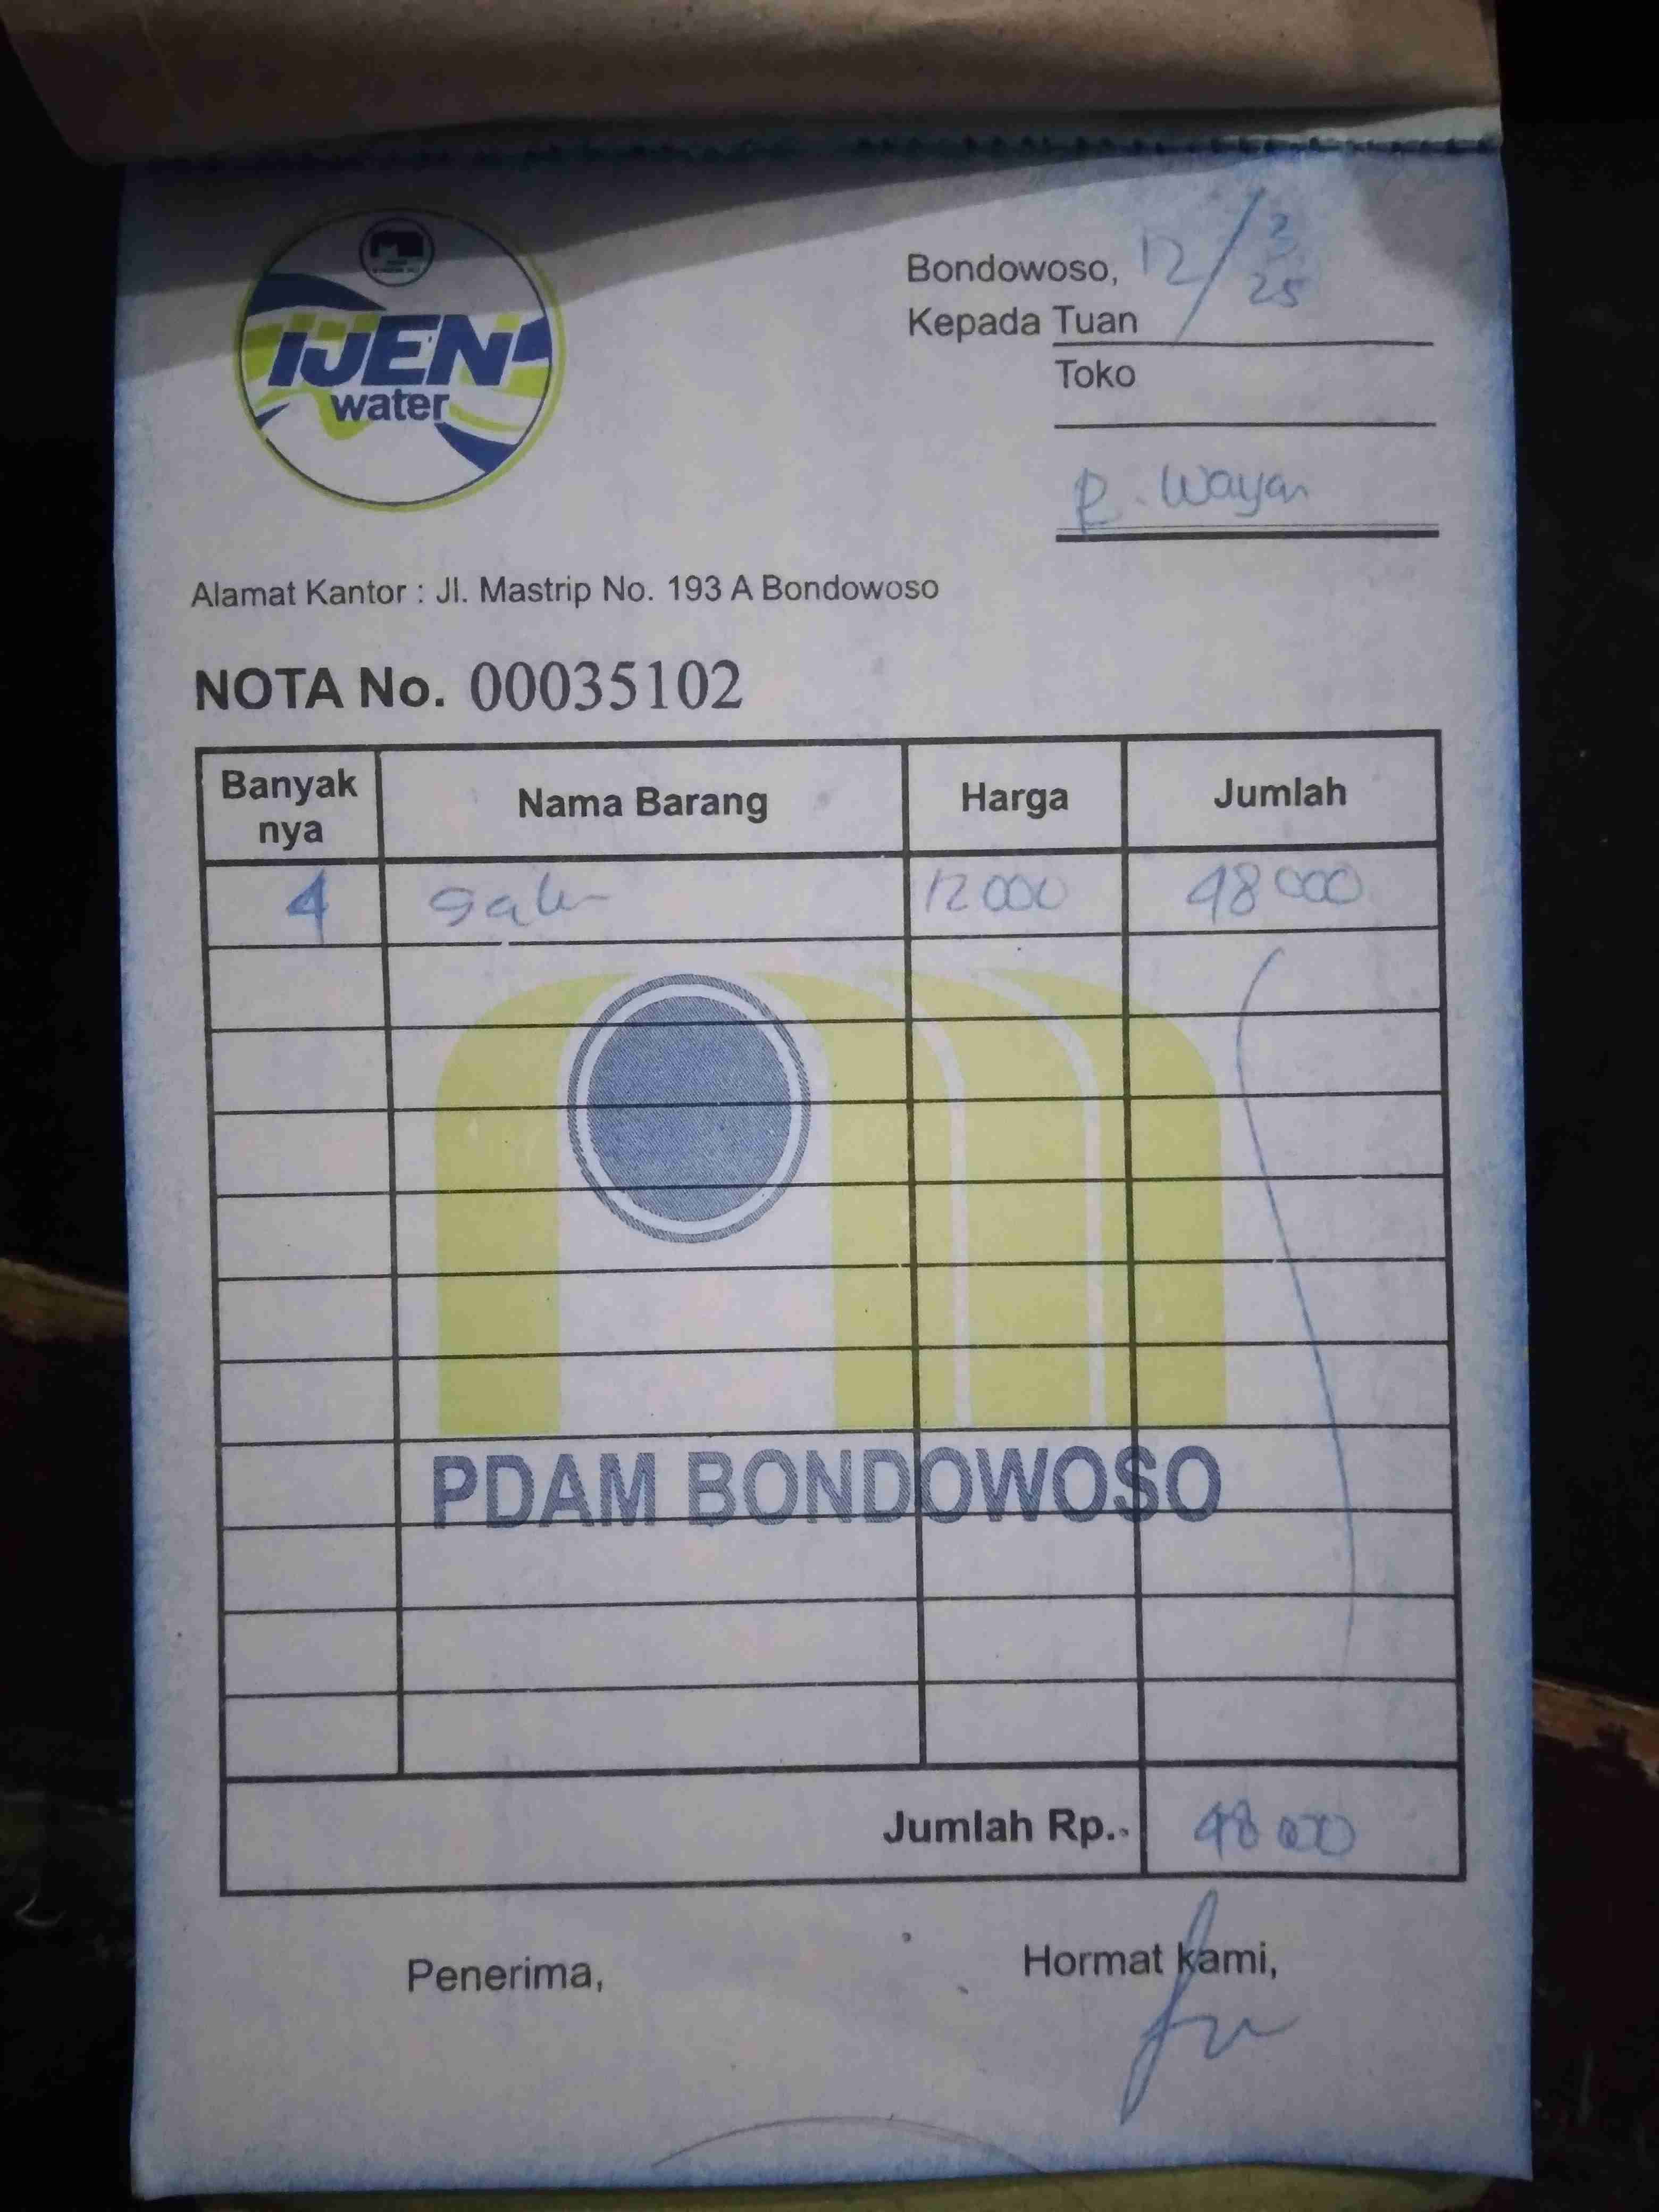 IJEN
water
Bondowoso, 12/3 25
Kepada Tuan
Toko
P. Wayan
Alamat Kantor : Jl. Mastrip No. 193 A Bondowoso
NOTA No. 00035102
Banyak nya Nama Barang Harga Jumlah
4 galon 12 000 48 000
PDAM BONDOWOSO
Jumlah Rp. 48 000
Penerima, Hormat kami,